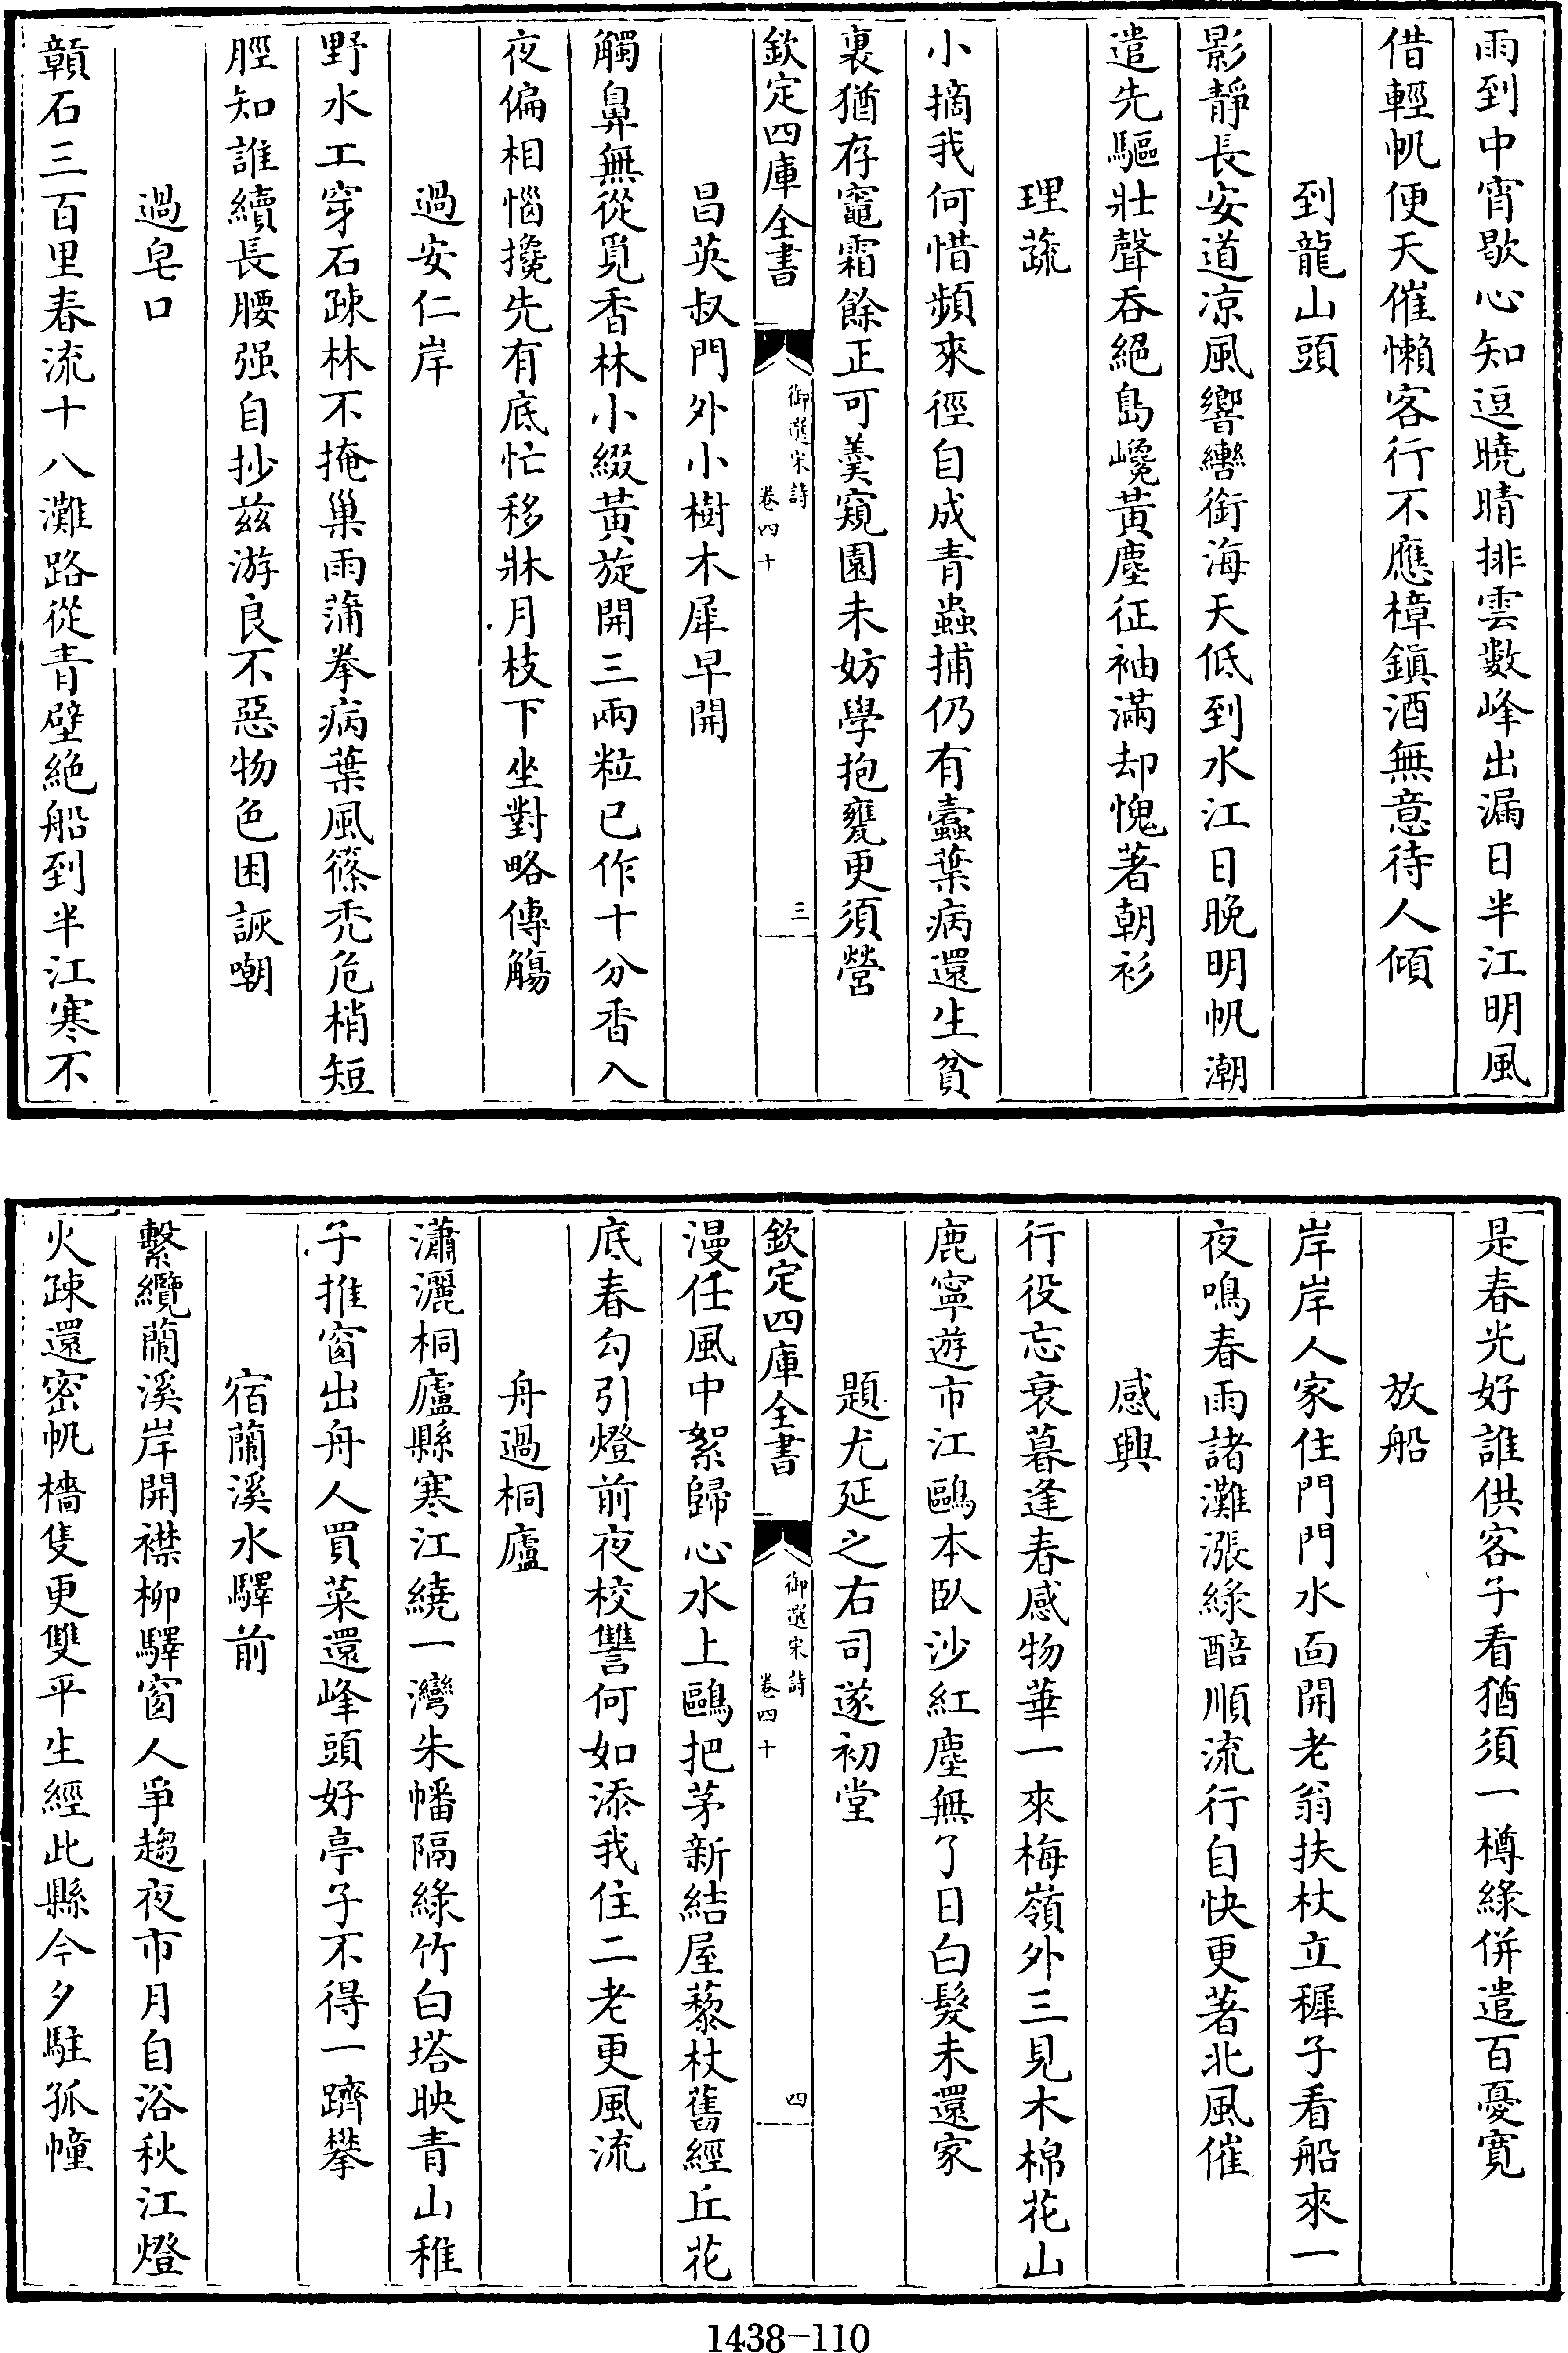 雨到中宵歇心知逗曉晴排雲數峰出漏日半江明風
借輕帆便天催懶客行不應樟鎮酒無意待人傾
到龍山頭
影靜長安道凉風響轡銜海天低到水江日晚明帆潮
遣先驅壯聲吞絕島巉黃塵征袖滿却愧著朝衫
理蔬
小摘我何惜頻來徑自成青蟲捕仍有蠧葉病還生貧
裏猶存竈霜餘正可羮窺園未妨學抱甕更須營
欽定四庫全書
御選宋詩
卷四十
三
昌英叔門外小樹木犀早開
觸鼻無從覓香林小綴黃旋開三兩粒已作十分香入
夜偏相惱攙先有底忙移牀月枝下坐對略傳觴
過安仁岸
野水工穿石疎林不掩巢雨蒲拳病葉風篠禿危梢短
脛知誰續長腰强自抄兹游良不惡物色困詼嘲
過皂口
贑石三百里春流十八灘路從青壁絶船到半江寒不
是春光好誰供客子看猶須一樽綠併遣百憂寛
放船
岸岸人家住門門水面開老翁扶杖立穉子看船來一
夜鳴春雨諸灘漲綠醅順流行自快更著北風催
感興
行役忘衰暮逢春感物華一來梅嶺外三見木棉花山
鹿寧遊市江鷗本臥沙紅塵無了日白髮未還家
題尤延之右司遂初堂
欽定四庫全書
御選宋詩
卷四十
四
漫任風中絮歸心水上鷗把茅新結屋藜杖舊經丘花
底春勾引燈前夜校讐何如添我住二老更風流
舟過桐廬
瀟灑桐廬縣寒江繞一灣朱幡隔綠竹白塔映青山稚
子推窗出舟人買菜還峰頭好亭子不得一躋攀
宿蘭溪水驛前
繫纜蘭溪岸開襟柳驛窗人爭趨夜市月自浴秋江燈
火疎還密帆檣隻更雙平生經此縣今夕駐孤幢
1438-110